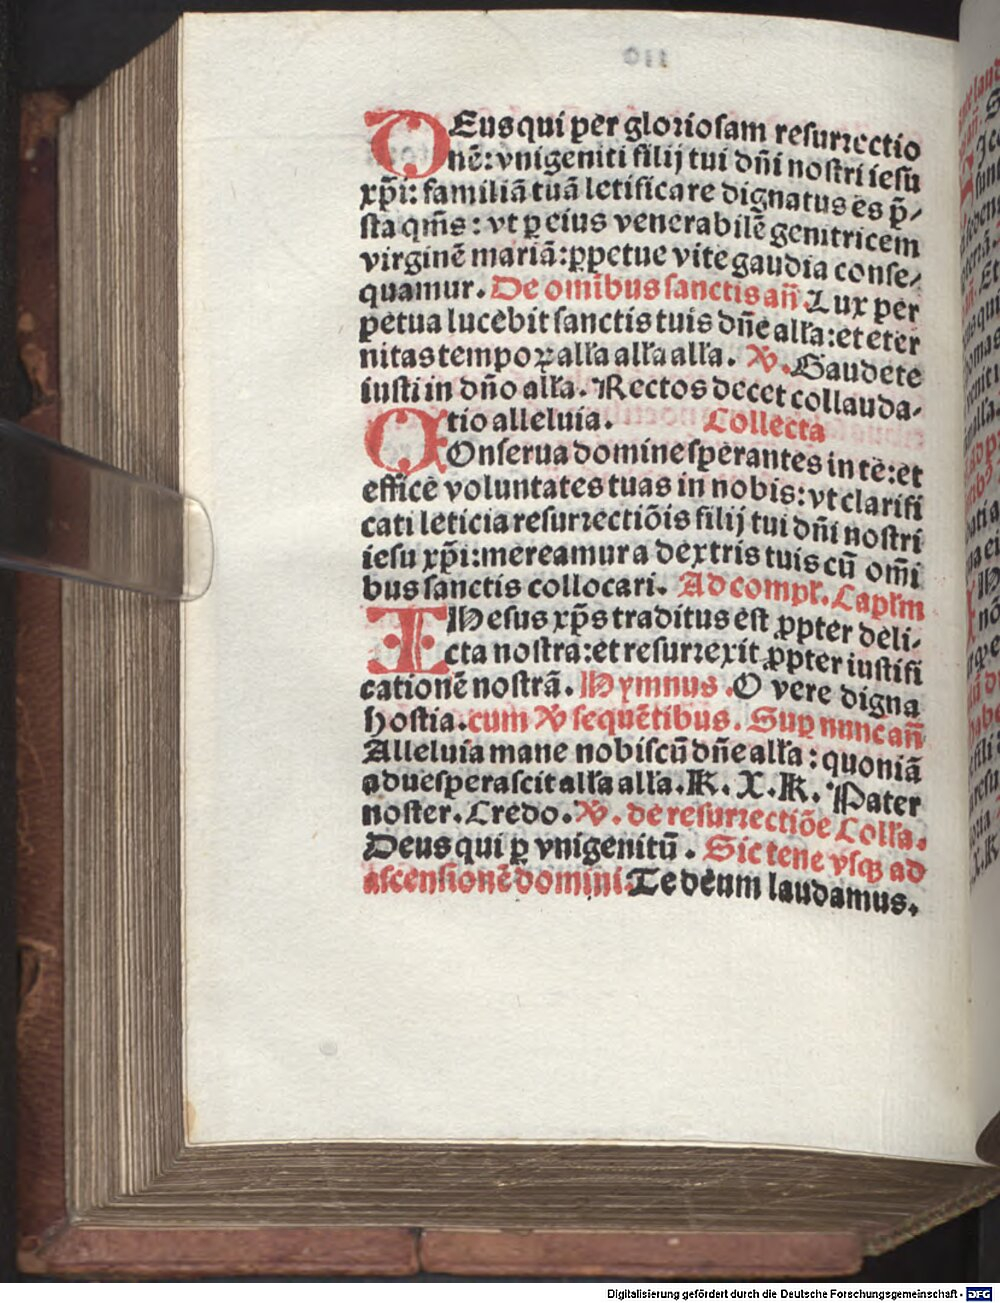 DEus qui per gloriosam resurrectio
nē: vnigeniti filij tui dn̄i nostri iesu
xp̄i: familiā tuā letificare dignatus es p̄⸗
sta qm̄s: vt ꝑ eius venerabilē genitricem
virginē mariā: ꝑpetue vite gaudia conse⸗
quamur. De omībus sanctis an̄ Lux per
petua lucebit sanctis tuis dn̄e alla: et eter
nitas tempoꝝ alla alla alla. ℣. Gaudete
iusti in dn̄o alla. Rectos decet collauda⸗
tio alleluia. Collecta
COnserua domine sperantes in te: et
effice voluntates tuas in nobis: vt clarifi
cati leticia resurrectiōis filij tui dn̄i nostri
iesu xp̄i: mereamur a dextris tuis cū om̄i
bus sanctis collocari. Ad compl̄. Capl̄m
IHesus xp̄s traditus est ꝓpter deli⸗
cta nostra: et resurrexit ꝓpter iustifi
cationē nostrā. Hymnus. O vere digna
hostia. cum ℣ sequētibus. Suꝑ nunc an̄
Alleluia mane nobiscū dn̄e alla: quoniā
aduesperascit alla alla. K. X. K. Pater
noster. Credo. ℣. de resurrectiōe Colla.
Deus qui ꝑ vnigenitū. Sic tene vsqꝫ ad
ascensionē domini Te deum laudamus.
Digitalisierung gefördert durch die Deutsche Forschungsgemeinschaft - DFG